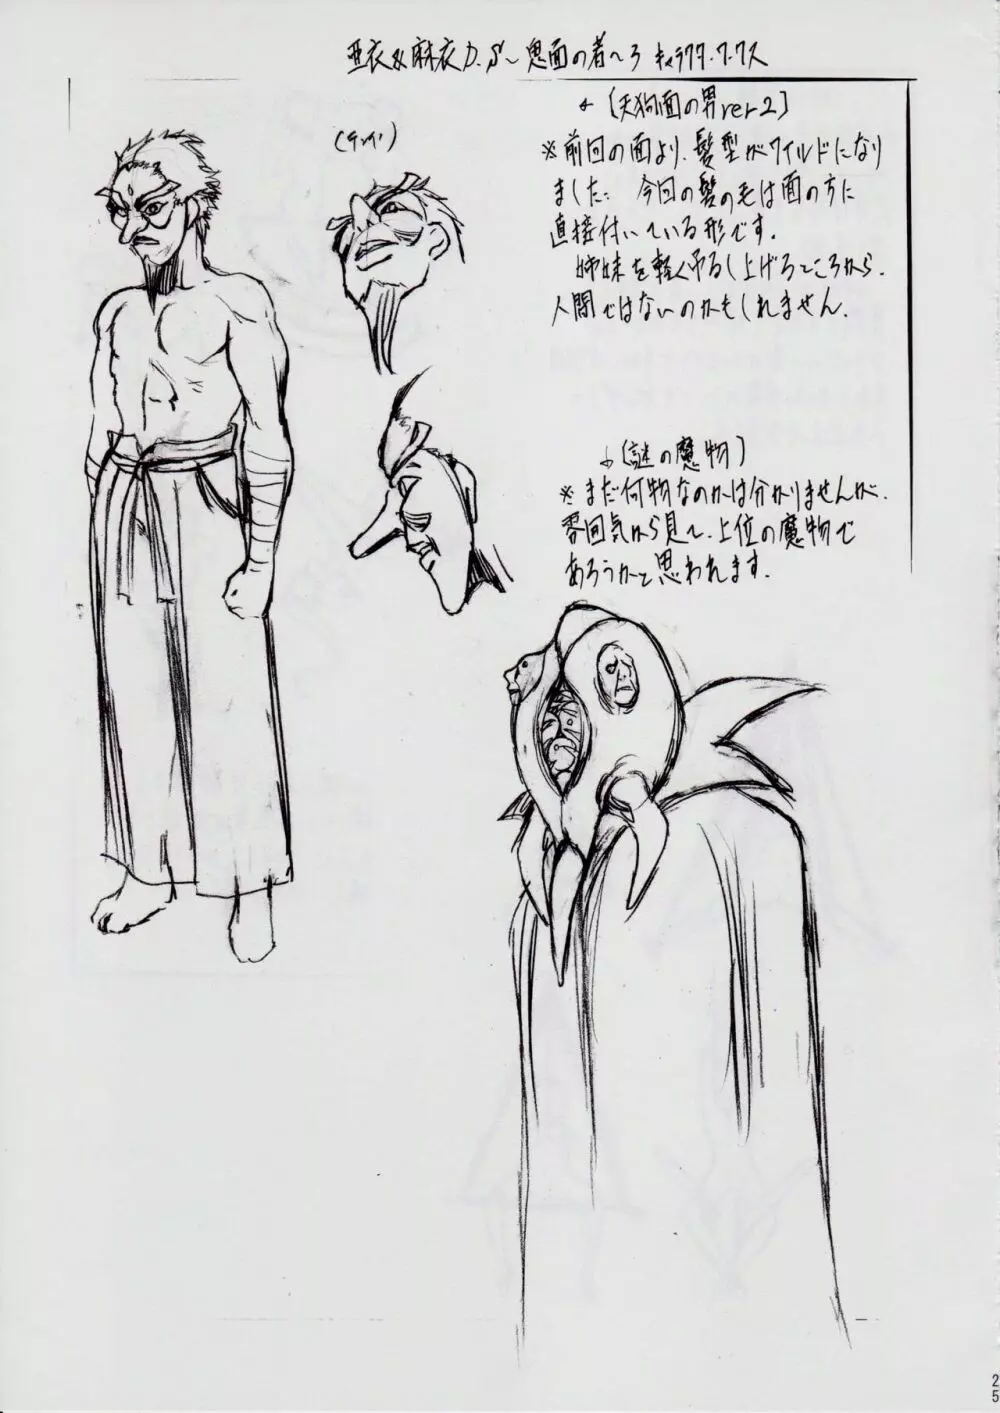 亜衣&麻衣D.S～鬼面の者～3 キャラクター.ラフ
(テング)
←[天狗面の男ver2]
※前回の面より、髪型がワイルドになり
ました。今回の髪の毛は面の方に
直接付いている形です。
姉妹を軽く吊るし上げるところから、
人間ではないのかもしれません。
↓[謎の魔物]
※まだ何物なのかは分かりませんが、
雰囲気から見て、上位の魔物で
あろうかと思われます。
25